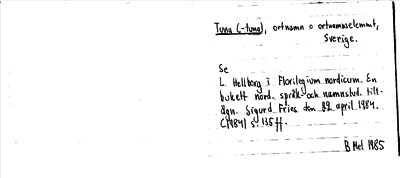 Tuna (-tuna), ortnamn o ortnamnselement,
Sverige.
Se
L. Hellberg i Florilegium nordicum. En
bukett nord. språk- och namnstud. till-
ägn. Sigurd Fries den 22 april 1984.
(1984) s. 135 ff.
B Hel 1985